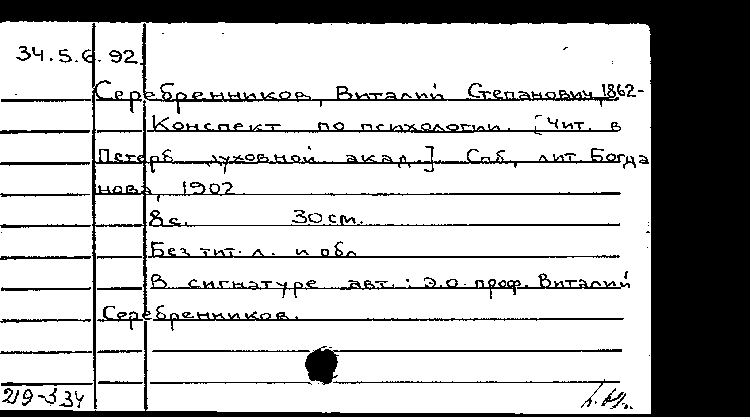 34.5.6.92
Серебренников, Виталий Степанович, 1862-
Конспект по психологии. [Чит. в
Петерб. духовной акад.] Спб., лит. Богда
нова, 1902
8 с. 30 см.
Без тит. л. и обл
В сигнатуре авт.: э.о. проф. Виталий
Серебренников.
219-334